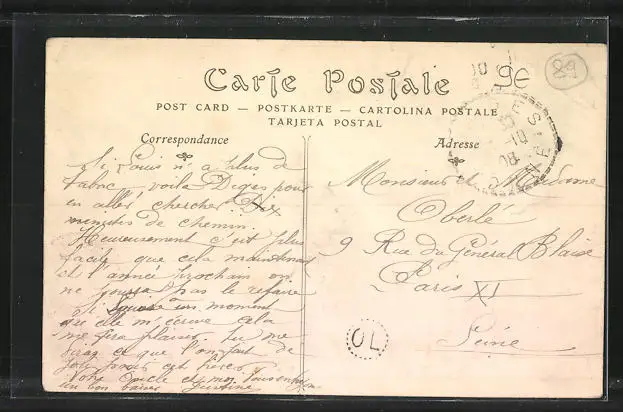 89
9€
Carte Postale
POST CARD — POSTKARTE — CARTOLINA POSTALE
TARJETA POSTAL
Correspondance
Adresse
Si Louis n'a plus de
tabac voilà Diges pour
en aller chercher Dix
minutes de chemin.
Heureusement c'est plus
facile que cela maintenant
et l'année prochain on
ne pourra pas le refaire
Si Louise un moment
qu'elle m'écrive cela
me fera plaisir tu me
diras et que l'on fait de
Votre Oncle et moi vous
un bon baiser Justine
Monsieur et Madame
Oberlé
9 Rue du Général Blaise
Paris XI
Seine
OL